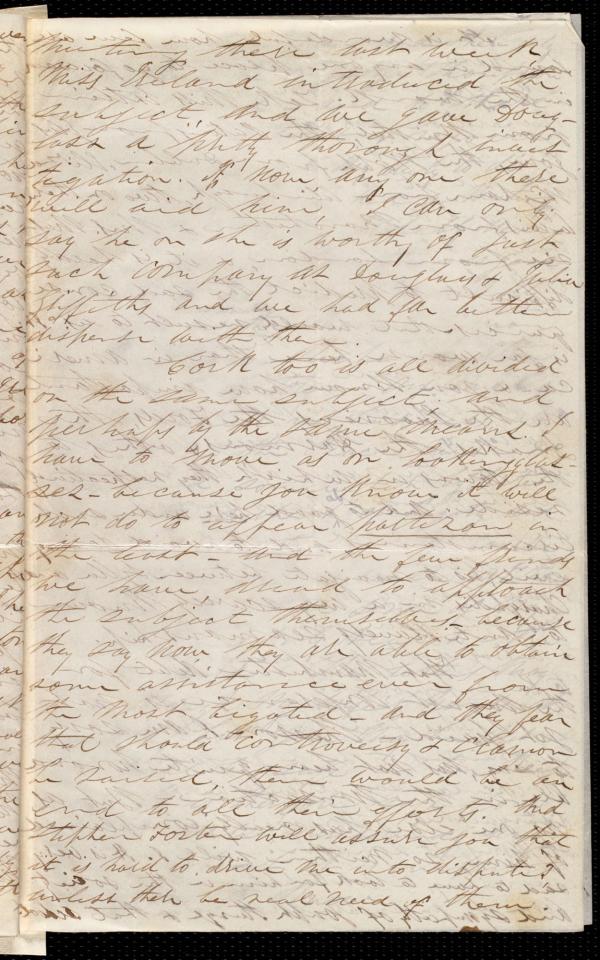 meeting there last week,
Miss Ireland introduced the
subject and we gave Doug-
lass a pretty thorough inves
tigation. If now, any one there
will aid him, I can only
say he or she is worthy of just
such company as Douglass & Julia
Griffiths and we had far better
dispense with them.
Cork too is all divided
on the same subject. and
perhaps by the same means. I
have to move as on looking glas-
ses - because you know it will
not do to appear partizan in
the least - and the few friends
we have, dread to approach
the subject themselves - because
they say now they are able to obtain
some assistance even from
the most bigoted - and they fear
that should controversy & clamor
be raised, there would be an
end to all their efforts. And
Stephen Foster will assure you that
it is hard to drive me into disputes
unless there be real need of them.